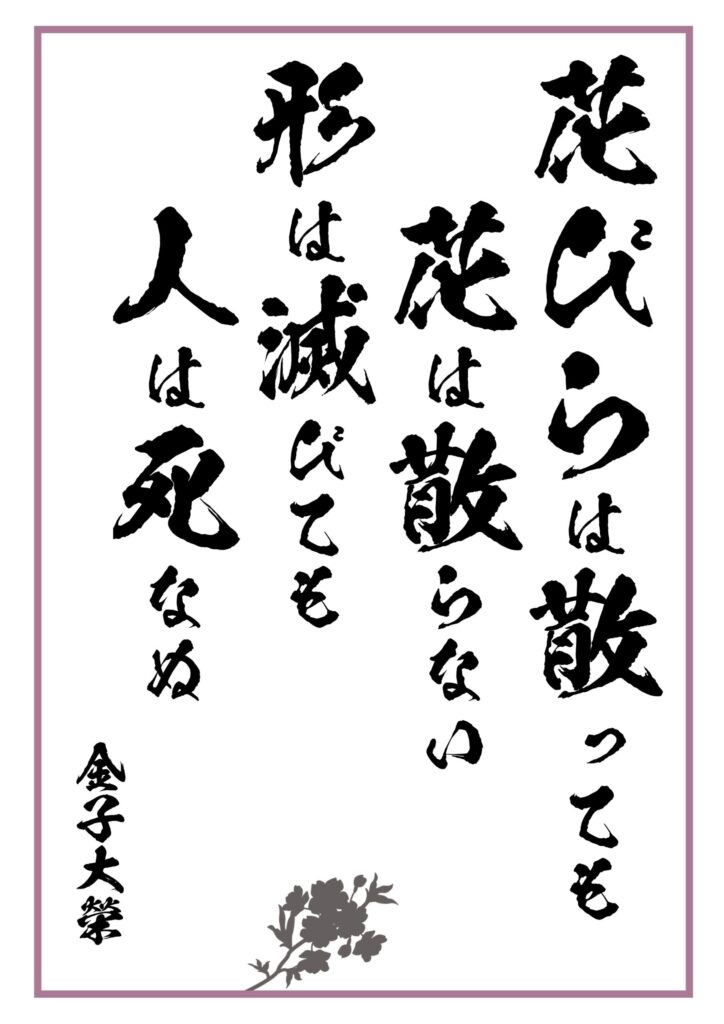 花びらは散っても
花は散らない
形は滅びても
人は死なぬ
金子大榮